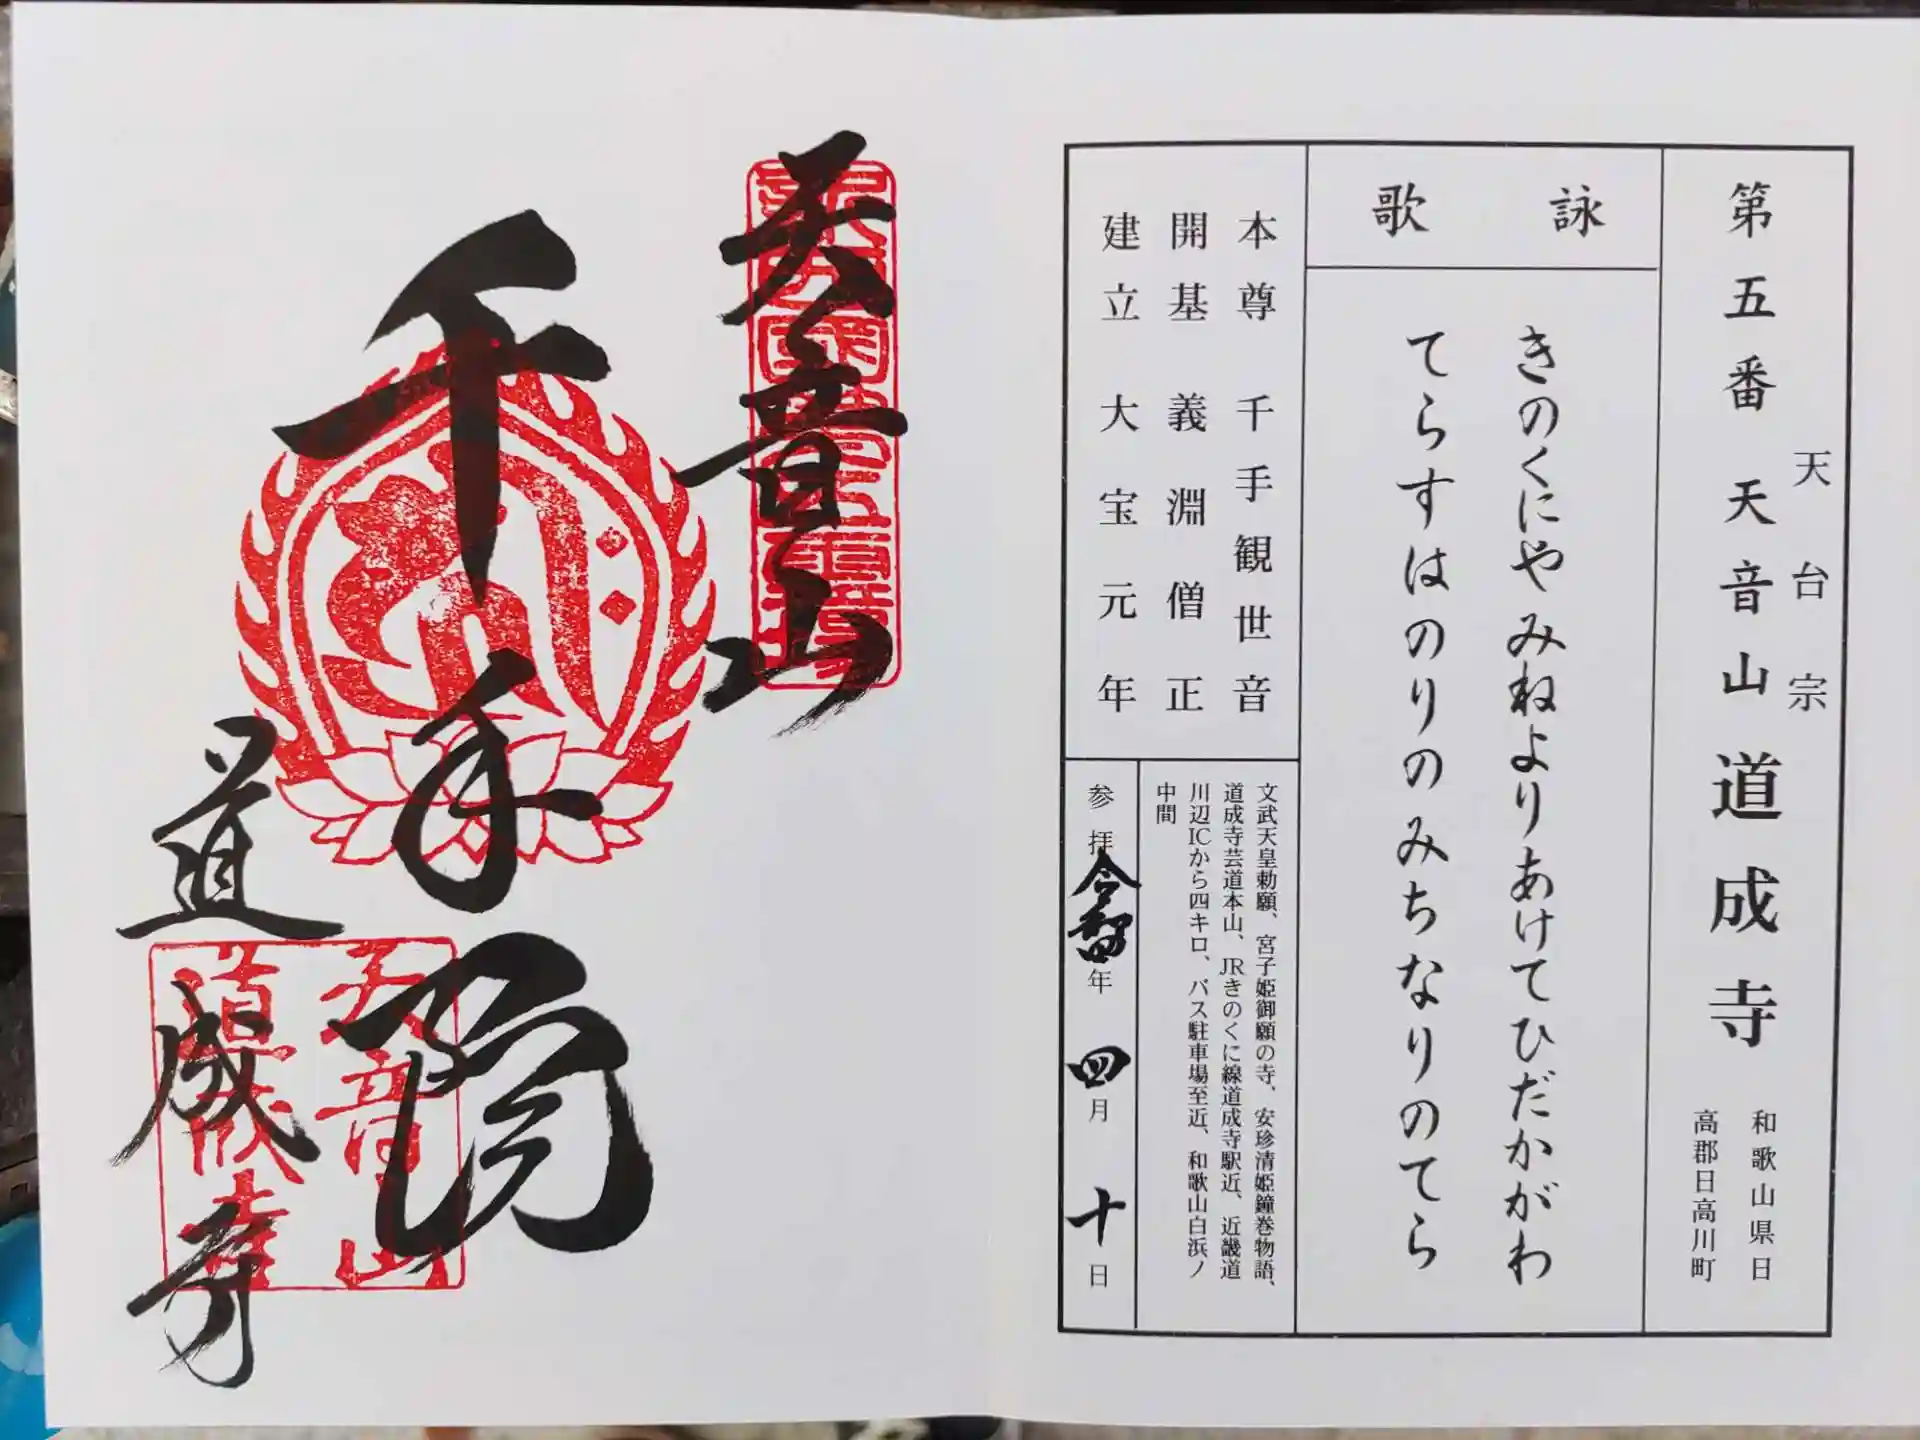 第五番 天音山 道成寺
天台宗
和歌山県日
高郡日高川町
詠歌
きのくにや みねよりあけて ひだかがわ
てらすはのりの みちなりのてら
本尊 千手観世音
開基 義淵僧正
建立 大宝元年
文武天皇勅願、宮子姫御願の寺、安珍清姫鐘巻物語、
道成寺芸道本山、JRきのくに線道成寺駅近、近畿道
川辺ICから四キロ、バス駐車場至近、和歌山白浜ノ
中間
参拝 令和四年 四月 十日
天音山
千手院
道成寺
天音山
道成寺